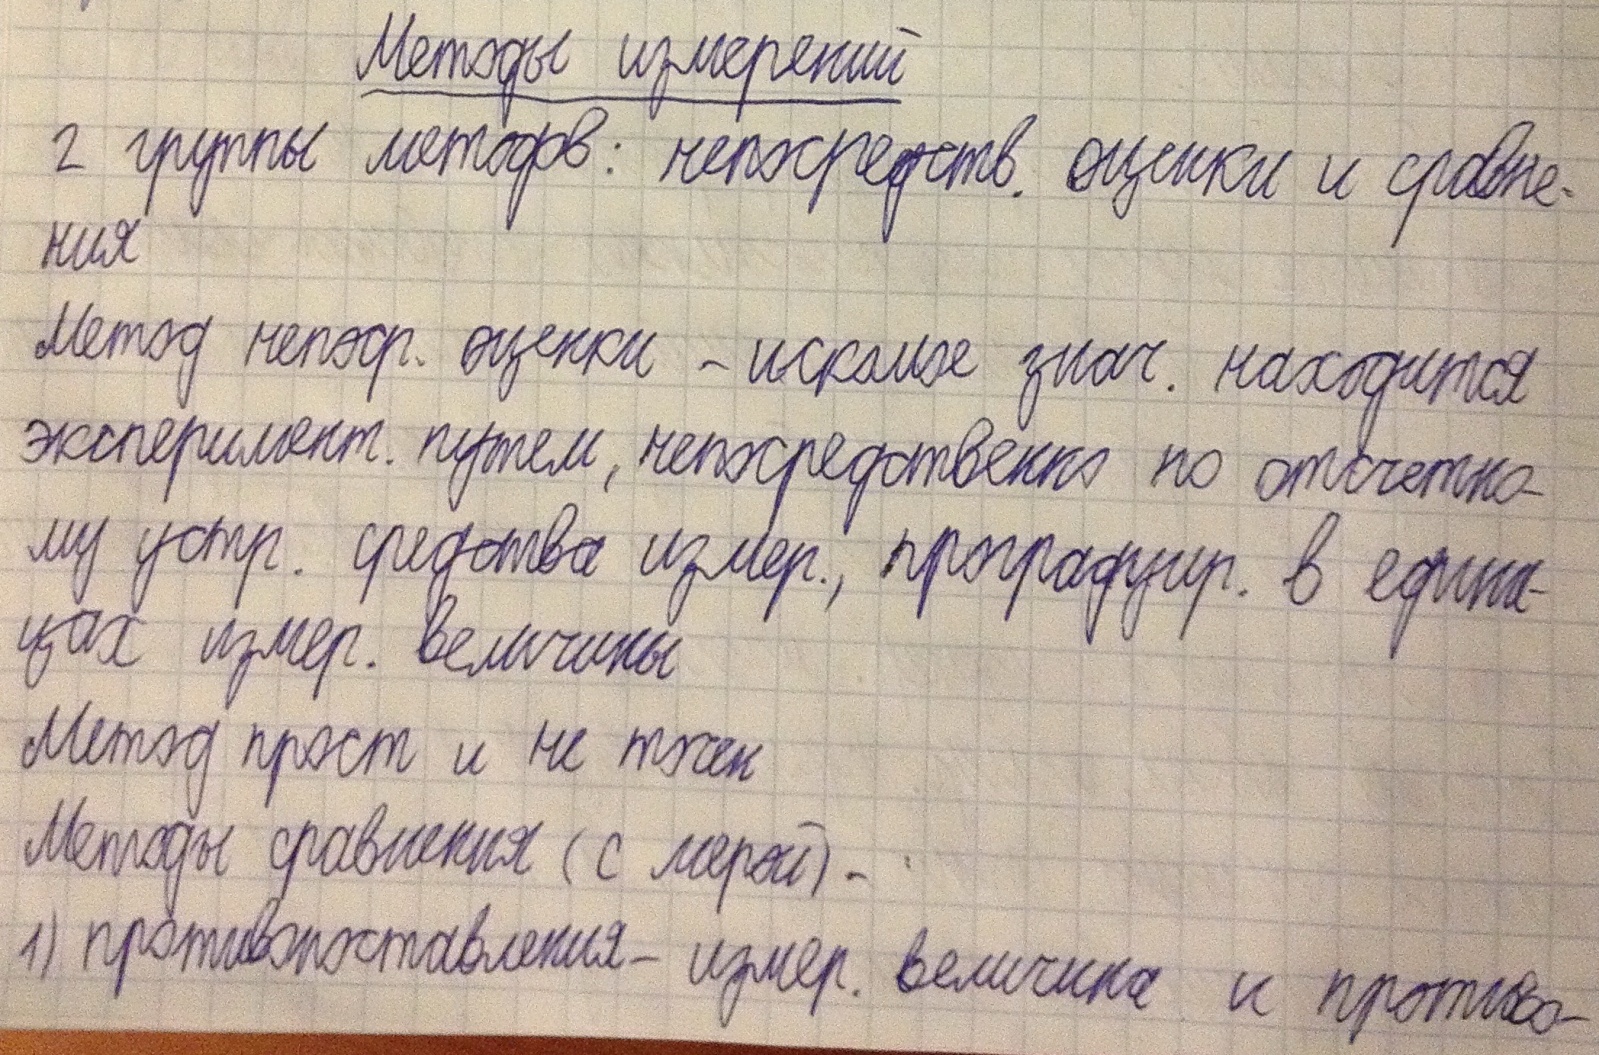 Методы измерений
2 группы методов: непосредств. оценки и сравне-
ния
Метод непоср. оценки - искомое знач. находится
эксперимент. путем, непосредственно по отсчетно-
му устр. средства измер., проградуир. в едини-
цах измер. величины
Метод прост и не точен
Методы сравнения (с мерой) -
1) противопоставления - измер. величина и противо-